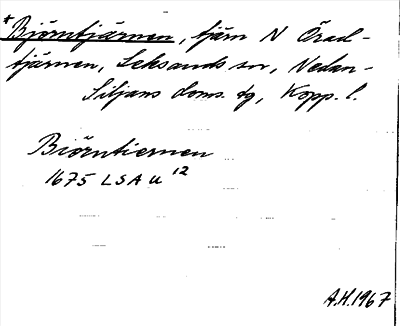 *Björntjärnen, tjärn N Örad-
tjärnen, Leksands sn, Nedan-
Siljans doms. tg, Kopp. l.
Biörntiernen
1675 LSA U 12
A.H. 1967